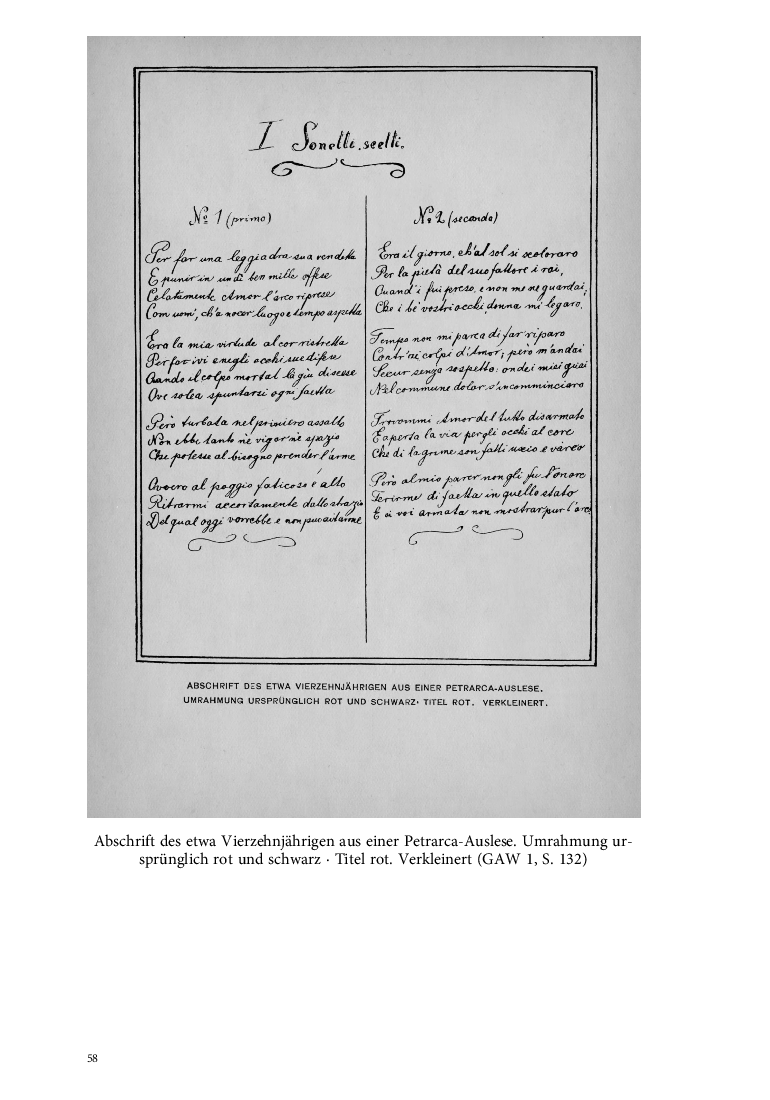 I Sonetti scelti.
Nº 1 (primo)
Per far una leggiadra sua vendetta
E punir in un dì ben mille offese
Celatamente Amor l'arco riprese
Com uom, ch'a nocer luogo e tempo aspetta
Era la mia virtude al cor ristretta
Per far ivi e negli occhi sue difese
Quando il colpo mortal là giù discese
Ove solea spuntarsi ogni saetta
Però turbata nel primiero assalto
Non ebbe tanto nè vigor nè spazio
Che potesse al bisogno prender l'arme
Ovvero al poggio faticoso e alto
Ritrarmi accortamente dallo strazio
Del qual oggi vorrebbe e non può aitarme
Nº 2 (secondo)
Era il giorno, ch'al sol si scoloraro
Per la pietà del suo fattore i rai,
Quand'i fui preso, e non me ne guardai,
Che i be' vostri occhi donna mi legaro.
Tempo non mi parea di far riparo
Contr'ai colpi d'Amor; però m'andai
Secur senza sospetto: onde i miei guai
Nel commune dolor s'incomminciaro
Trovommi Amor del tutto disarmato
E aperta la via per gli occhi al core
Che di lagrime son fatti uscio e varco
Però al mio parer non gli fu l'onore
Ferirme di saetta in quello stato
E a voi armata non mostrar pur l'arco
ABSCHRIFT DES ETWA VIERZEHNJÄHRIGEN AUS EINER PETRARCA-AUSLESE.
UMRAHMUNG URSPRÜNGLICH ROT UND SCHWARZ· TITEL ROT. VERKLEINERT.
Abschrift des etwa Vierzehnjährigen aus einer Petrarca-Auslese. Umrahmung ur-
sprünglich rot und schwarz · Titel rot. Verkleinert (GAW 1, S. 132)
58